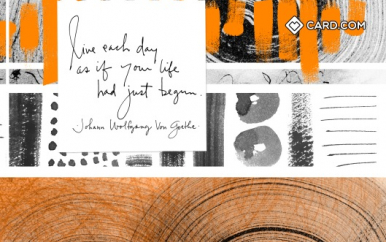 CARD.COM
live each day
as if your life
had just begun.
Johann Wolfgang Von Goethe